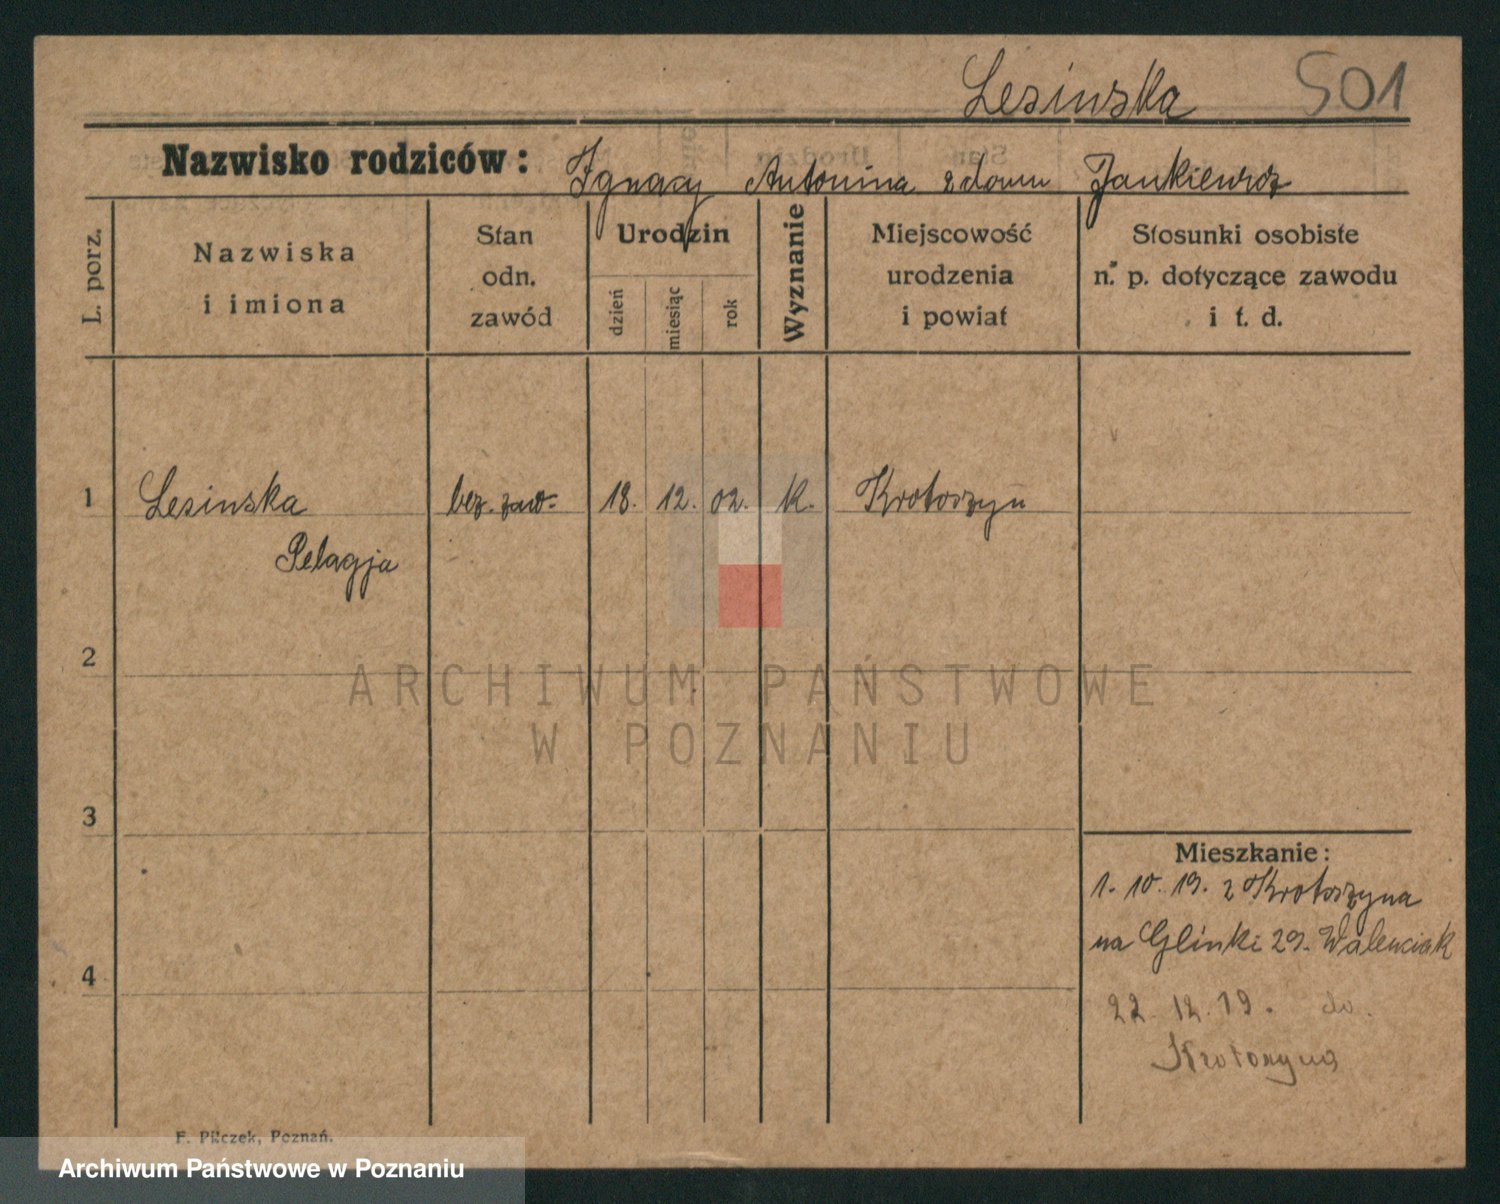 Lesinska 501
Nazwisko rodziców: Ignacy Antonina z domu Jankiewicz
L. porz.
Nazwiska
i imiona
Stan
odn.
zawód
Urodzin
dzień
miesiąc
rok
Wyznanie
Miejscowość
urodzenia
i powiat
Stosunki osobiste
n. p. dotyczące zawodu
i t. d.
1 Lesinska bez. zaw. 18. 12. 02. K. Krotoszyn
Pelagja
2
3
4
Mieszkanie:
1. 10. 19. z Krotoszyna
na Glinki 29. Walenciak
22. 12. 19. do.
Krotoszyna
ARCHIWUM PAŃSTWOWE
W POZNANIU
F. Pilczek, Poznań.
Archiwum Państwowe w Poznaniu